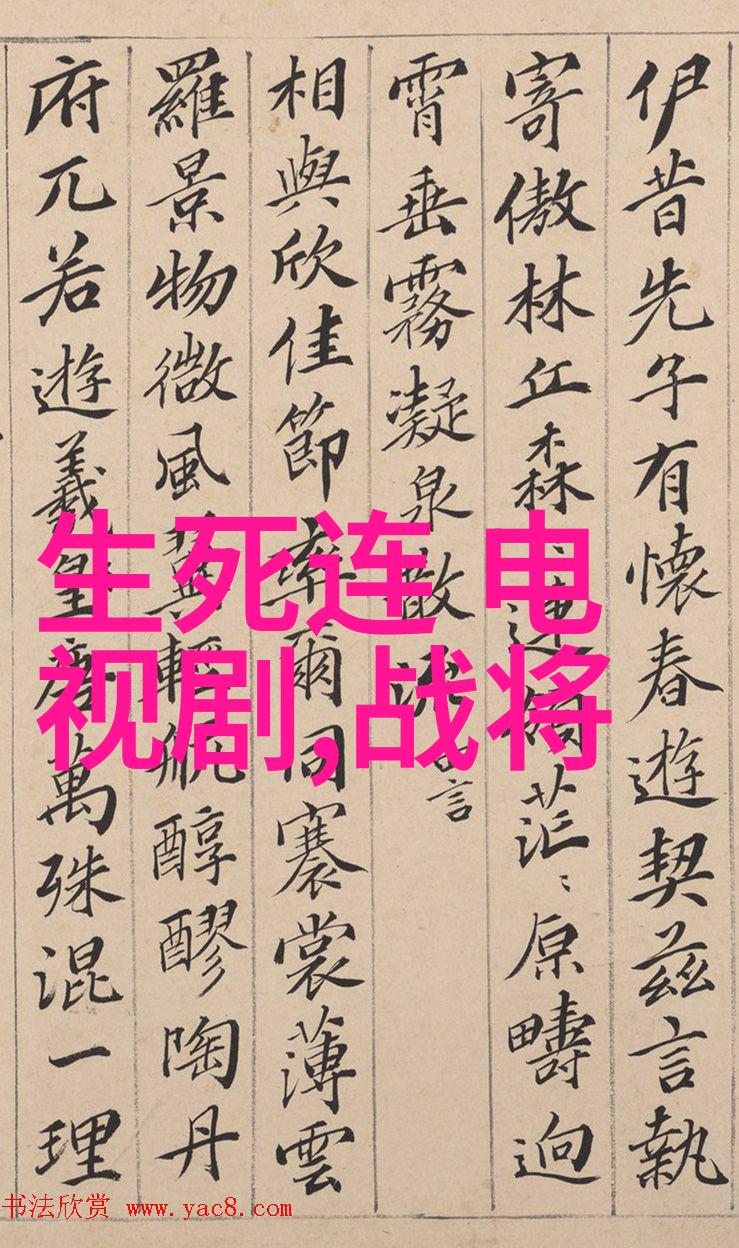 伊昔先子有懷春遊契茲言執
寄傲林丘森〻連領茫〻原疇逈
霄垂霧凝泉散流 言
相與欣佳節率爾同褰裳薄雲
羅景物微風翼輕航醇醪陶丹
府兀若遊羲皇唐萬殊混一理
生死连 电
视剧,战将
书法欣赏 www.yac8.com